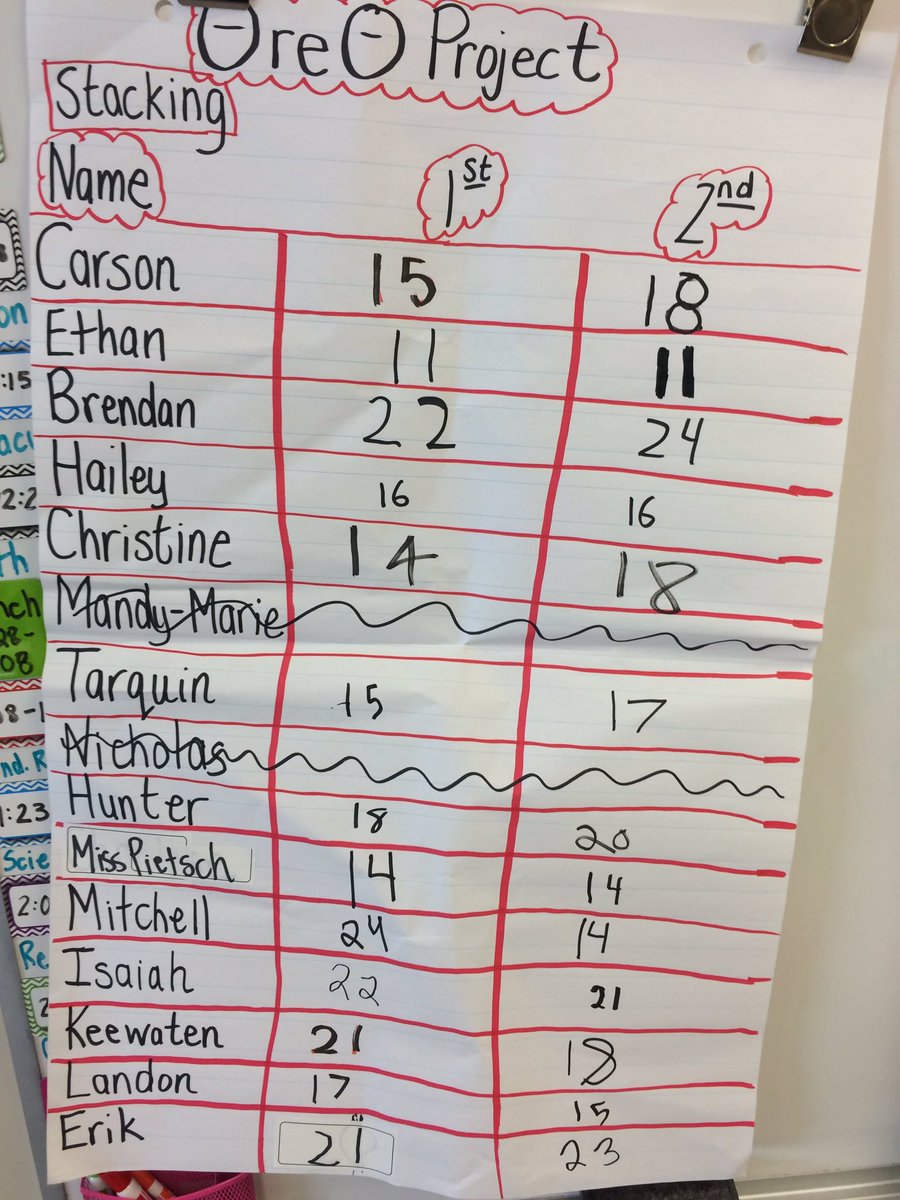 OreO Project
Stacking
Name 1st 2nd
Carson 15 18
Ethan 11 11
Brendan 22 24
Hailey 16 16
Christine 14 18
Mandy-Marie
Tarquin 15 17
Nicholas
Hunter 18 20
Miss Pietsch 14 14
Mitchell 24 14
Isaiah 22 21
Keewaten 21 18
Landon 17 15
Erik 21 23
on
:15
12:2
th
nch
28-
08
08-1
nd. R
1:23
Scie
2:0
Re